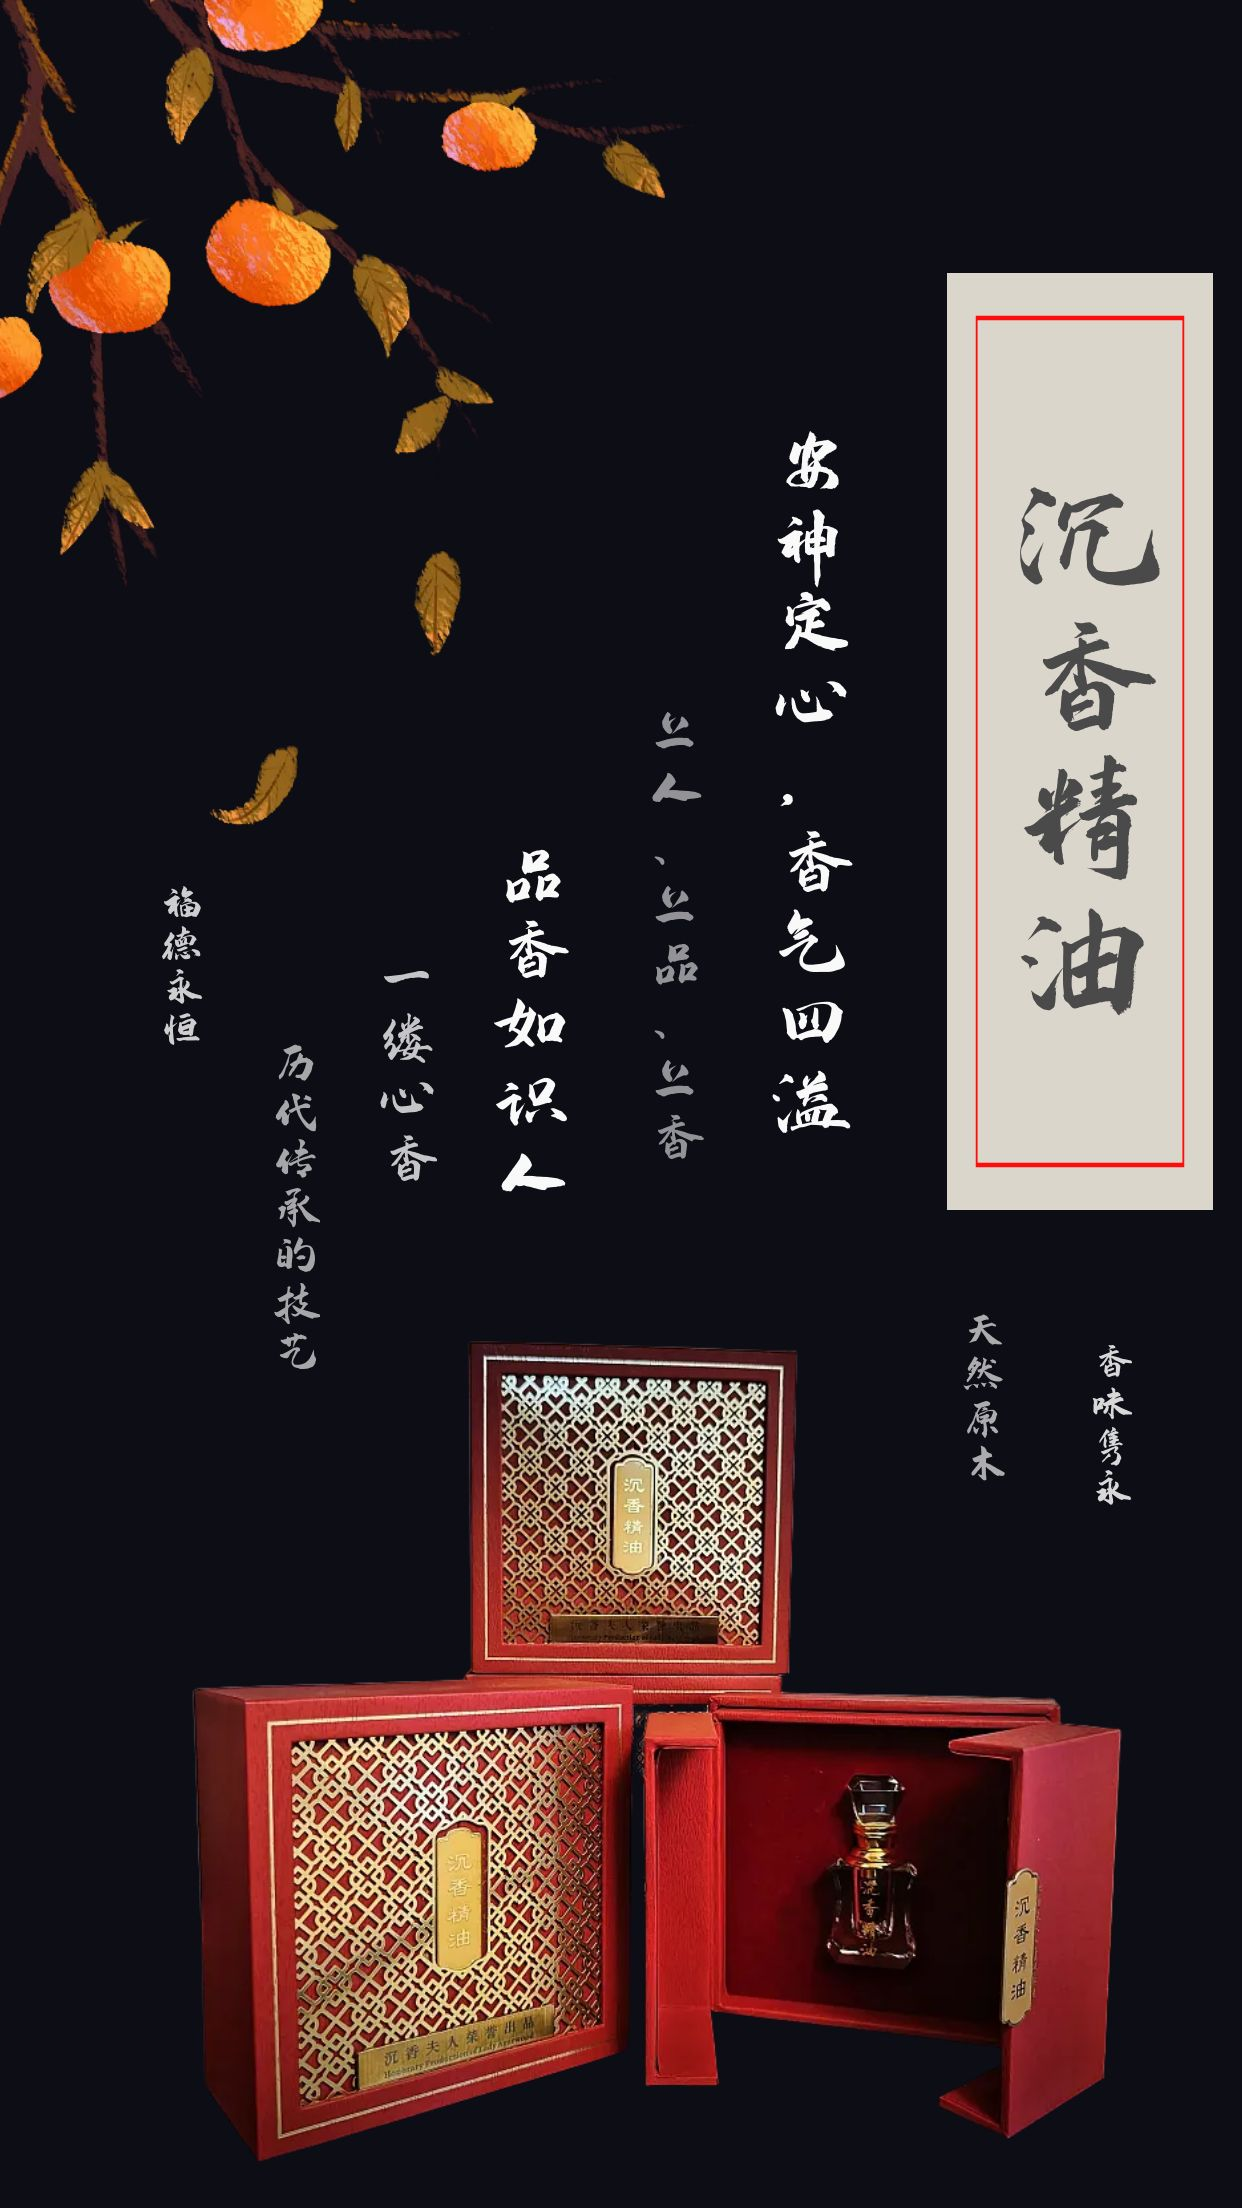 沉香精油
安神定心，香气四溢
丝人、丝品、丝香
品香如识人
一缕心香
历代传承的技艺
福德永恒
香味隽永
天然原木
沉香精油
沉香夫人荣誉出品
沉香精油
沉香夫人荣誉出品
Honorary Production of Lady Agarwood
沉香精油
沉香精油